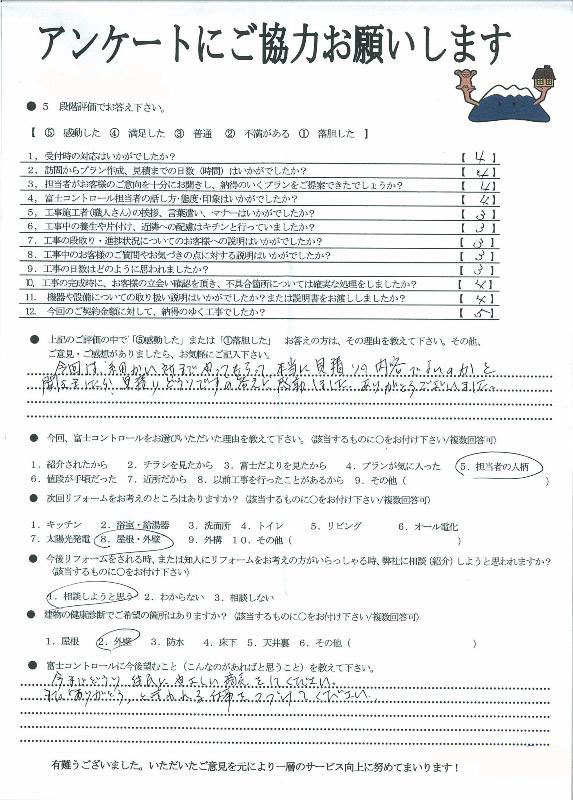 アンケートにご協力お願いします
● 5 段階評価でお答え下さい。
【 ⑤ 感動した ④ 満足した ③ 普通 ② 不満がある ① 落胆した 】
1，受付時の対応はいかがでしたか？ 【 4 】
2，訪問からプラン作成、見積までの日数（時間）はいかがでしたか？ 【 4 】
3，担当者がお客様のご意向を十分にお聞きし、納得のいくプランをご提案できたでしょうか？ 【 4 】
4，富士コントロール担当者の話し方・態度・印象はいかがでしたか？ 【 4 】
5，工事施工者（職人さん）の挨拶、言葉遣い、マナーはいかがでしたか？ 【 3 】
6，工事中の養生や片付け、近隣への配慮はキチンと行っていましたか？ 【 3 】
7，工事の段取り・進捗状況についてのお客様への説明はいかがでしたか？ 【 3 】
8，工事中のお客様のご質問やお気づきの点に対する説明はいかがでしたか？ 【 3 】
9，工事の日数はどのように思われましたか？ 【 3 】
10，工事の完成時に、お客様の立会い確認を頂き、不具合箇所については確実な処理をしましたか？ 【 4 】
11．機器や設備についての取り扱い説明はいかがでしたか？または説明書をお渡ししましたか？ 【 4 】
12．今回のご契約金額に対して、納得のゆく工事でしたか？ 【 5 】
● 上記のご評価の中で「⑤感動した」または「①落胆した」 お答えの方は、その理由を教えて下さい。その他、
ご意見・ご感想がありましたら、お気軽にご記入下さい。
今回は、細かい所まで やってもらって 本当に見積りの内容でよいのかと
聞きましたが、見積りどうりですの答えに感動しました。ありがとうございました。
● 今回、富士コントロールをお選びいただいた理由を教えて下さい。（該当するものに〇をお付け下さい/複数回答可）
1．紹介されたから 2．チラシを見たから 3．富士だよりを見たから 4．プランが気に入った 5．担当者の人柄
6．値段が手頃だった 7．近所だから 8．以前工事を行ったことがあるから 9．その他（ ）
● 次回リフォームをお考えのところはありますか？（該当するものに〇をお付け下さい/複数回答可）
1．キッチン 2．浴室・給湯器 3．洗面所 4．トイレ 5．リビング 6．オール電化
7．太陽光発電 8．屋根・外壁 9．外構 10．その他（ ）
● 今後リフォームをされる時、または知人にリフォームをお考えの方がいらっしゃる時、弊社に相談（紹介）しようと思われますか？
（該当するものに〇をお付け下さい）
1．相談しようと思う 2．わからない 3．相談しない
● 建物の健康診断でご希望の箇所はありますか？（該当するものに〇をお付け下さい/複数回答可）
1．屋根 2．外壁 3．防水 4．床下 5．天井裏 6．その他（ ）
● 富士コントロールに今後望むこと（こんなのがあればと思うこと）を教えて下さい。
今までどうり 住民に やさしい 商売をしてください。
私「ありがとう」と言われる仕事をつづけてください。
有難うございました。いただいたご意見を元により一層のサービス向上に努めてまいります！